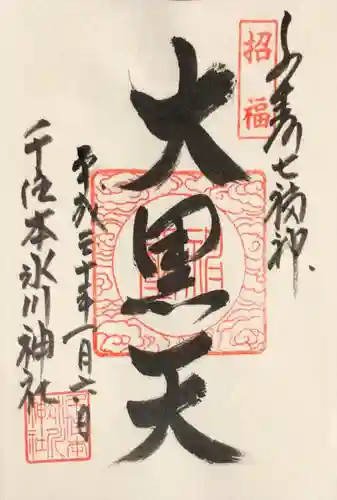 千寿七福神
招福
大黒天
平成三十年一月六日
千住本氷川神社